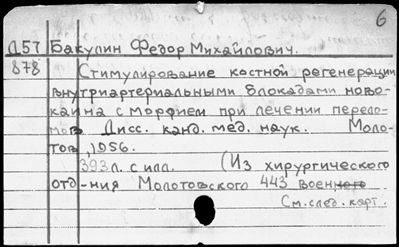 б
Д57 Бакулин Федор Михайлович.
878 Стимулирование костной регенерации
внутриартериальными блокадами ново-
каина с морфием при лечении перело-
мов. Дисс. канд. мед. наук. Моло-
тов, 1956.
393 л. с илл. (Из хирургического
отд-ния Молотовского 443 военного
См. след. карт.